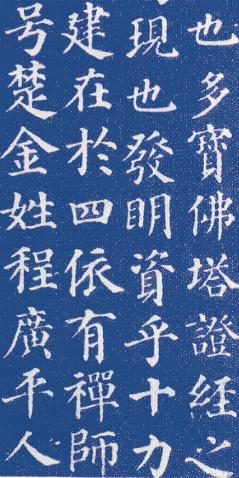 也多寶佛塔證経之
現也發明資乎十力
建在於四依有禪師
号楚金姓程廣平人